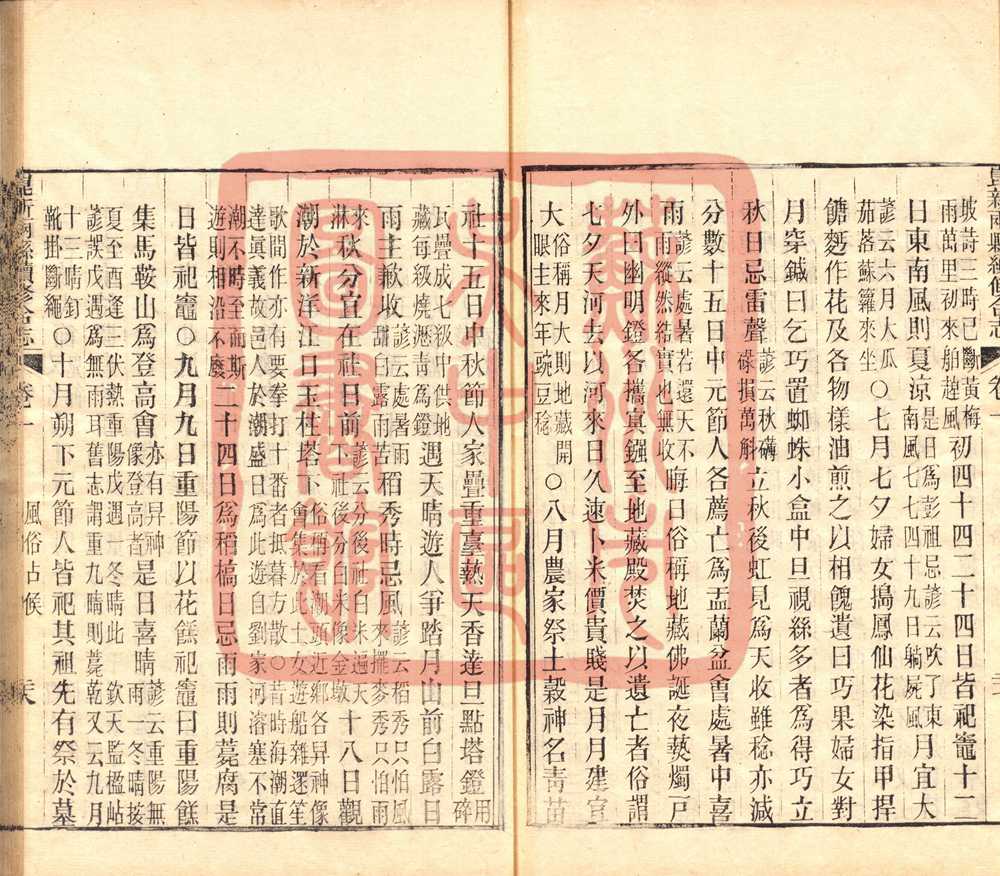 崑新兩縣續修合志 卷一
坡詩三時已斷黃梅雨萬里初來舶趠風 初四十四二十四日皆祀竈十二
日東南風則夏涼 是日爲彭祖忌諺云吹了東南風七七四十九日躺屍風 月宜大
諺云六月大瓜茄落蘇籮來坐 ○七月七夕婦女搗鳳仙花染指甲捍
餹麪作花及各物樣油煎之以相餽遺曰巧果婦女對
月穿鍼曰乞巧置蜘蛛小盒中旦視絲多者爲得巧立
秋日忌雷聲 諺云秋礴碌損萬斛 立秋後虹見爲天收雖稔亦減
分數十五日中元節人各薦亡爲盂蘭盆會處暑中喜
雨 諺云處暑若還天不雨縱然結實也無收 晦日俗稱地藏佛誕夜爇燭戶
外曰幽明鐙各攜冥鏹至地藏殿焚之以遺亡者俗謂
七夕天河去以河來日久速卜米價貴賤是月月建宜
大 俗稱月大則地藏開眼主來年豌豆稔 ○八月農家祭土穀神名靑苗
社十五日中秋節人家疊重臺爇天香達旦點塔鐙 用碎
瓦疊成七級中供地藏每級燒瀝靑爲鐙 遇天晴遊人爭踏月山前白露日
雨主歉收 諺云處暑雨甜白露雨苦 稻秀時忌風 諺云稻秀只怕風來擺麥秀只怕雨
來淋 秋分宜在社日前 諺云分後社白米遍天下社後分白米像金墩 十八日觀
潮於新洋江日玉柱塔下 俗稱看潮頭近鄉各昇神像會集於此士女遊船雜遝笙
歌間作亦有要拳打十番者抵暮方散○昔時海潮直達眞義故邑人於潮盛日爲此遊自劉家河溶塞不常
潮不時至而斯遊則相沿不廢 二十四日爲稻槁日忌雨雨則薨腐是
日皆祀竈○九月九日重陽節以花餻祀竈曰重陽餻
集馬鞍山爲登高會 亦有昇神像登高者 是日喜晴 諺云重陽無雨一冬晴按
夏至酉逢三伏熱重陽戊遇一冬晴此諺誤戊遇爲無雨耳舊志謂重九晴則薨乾 欽天監楹帖又云九月
十三晴釘靴掛斷繩 ○十月朔下元節人皆祀其祖先有祭於墓
崑新兩縣續修合志 卷一 風俗占候